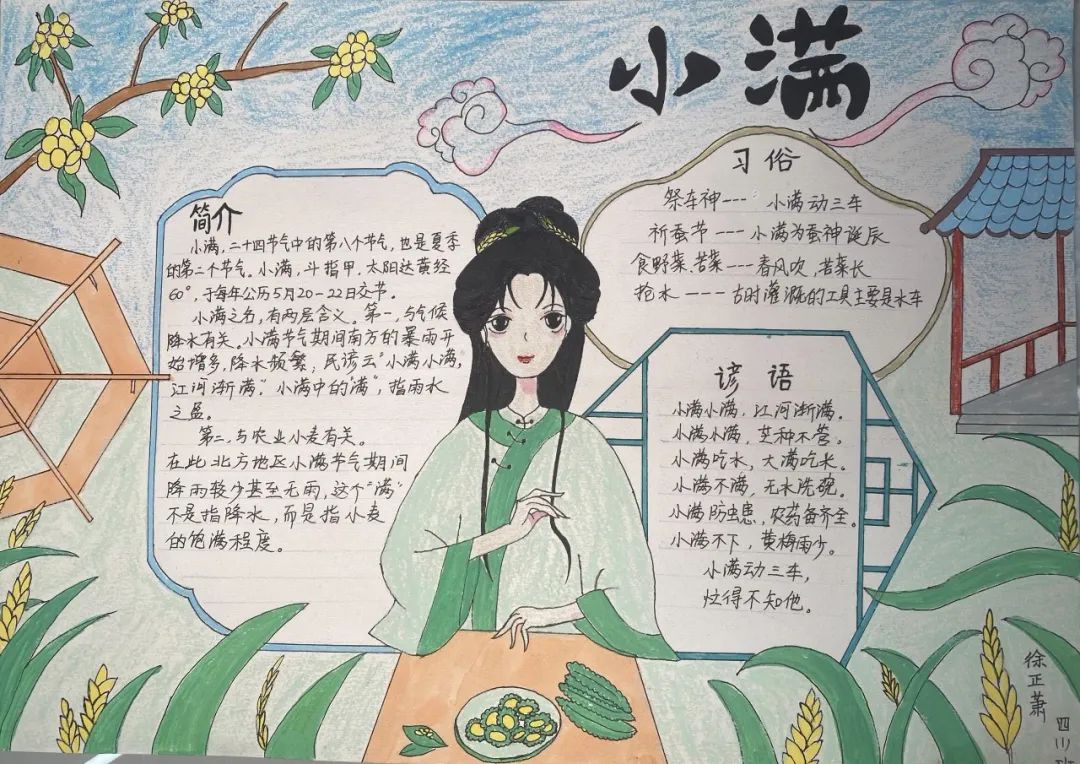 小满
简介
小满，二十四节气中的第八个节气，也是夏季
的第二个节气。小满，斗指甲，太阳达黄经
60°，于每年公历5月20-22日交节。
小满之名，有两层含义。第一，与气候
降水有关。小满节气期间南方的暴雨开
始增多，降水频繁，民谚云"小满小满，
江河渐满"。小满中的"满"，指雨水
之盈。
第二，与农业小麦有关。
在此北方地区小满节气期间
降雨较少甚至无雨，这个"满"
不是指降水，而是指小麦
的饱满程度。
习俗
祭车神---小满动三车
祈蚕节---小满为蚕神诞辰
食野菜、苦菜---春风吹，苦菜长
抢水----古时灌溉的工具主要是水车
谚语
小满小满，江河渐满。
小满小满，芒种不管。
小满吃水，大满吃米。
小满不满，无水洗碗。
小满防虫患，农药备齐全。
小满不下，黄梅雨少。
小满动三车，
忙得不知他。
徐正萧
四(1)班